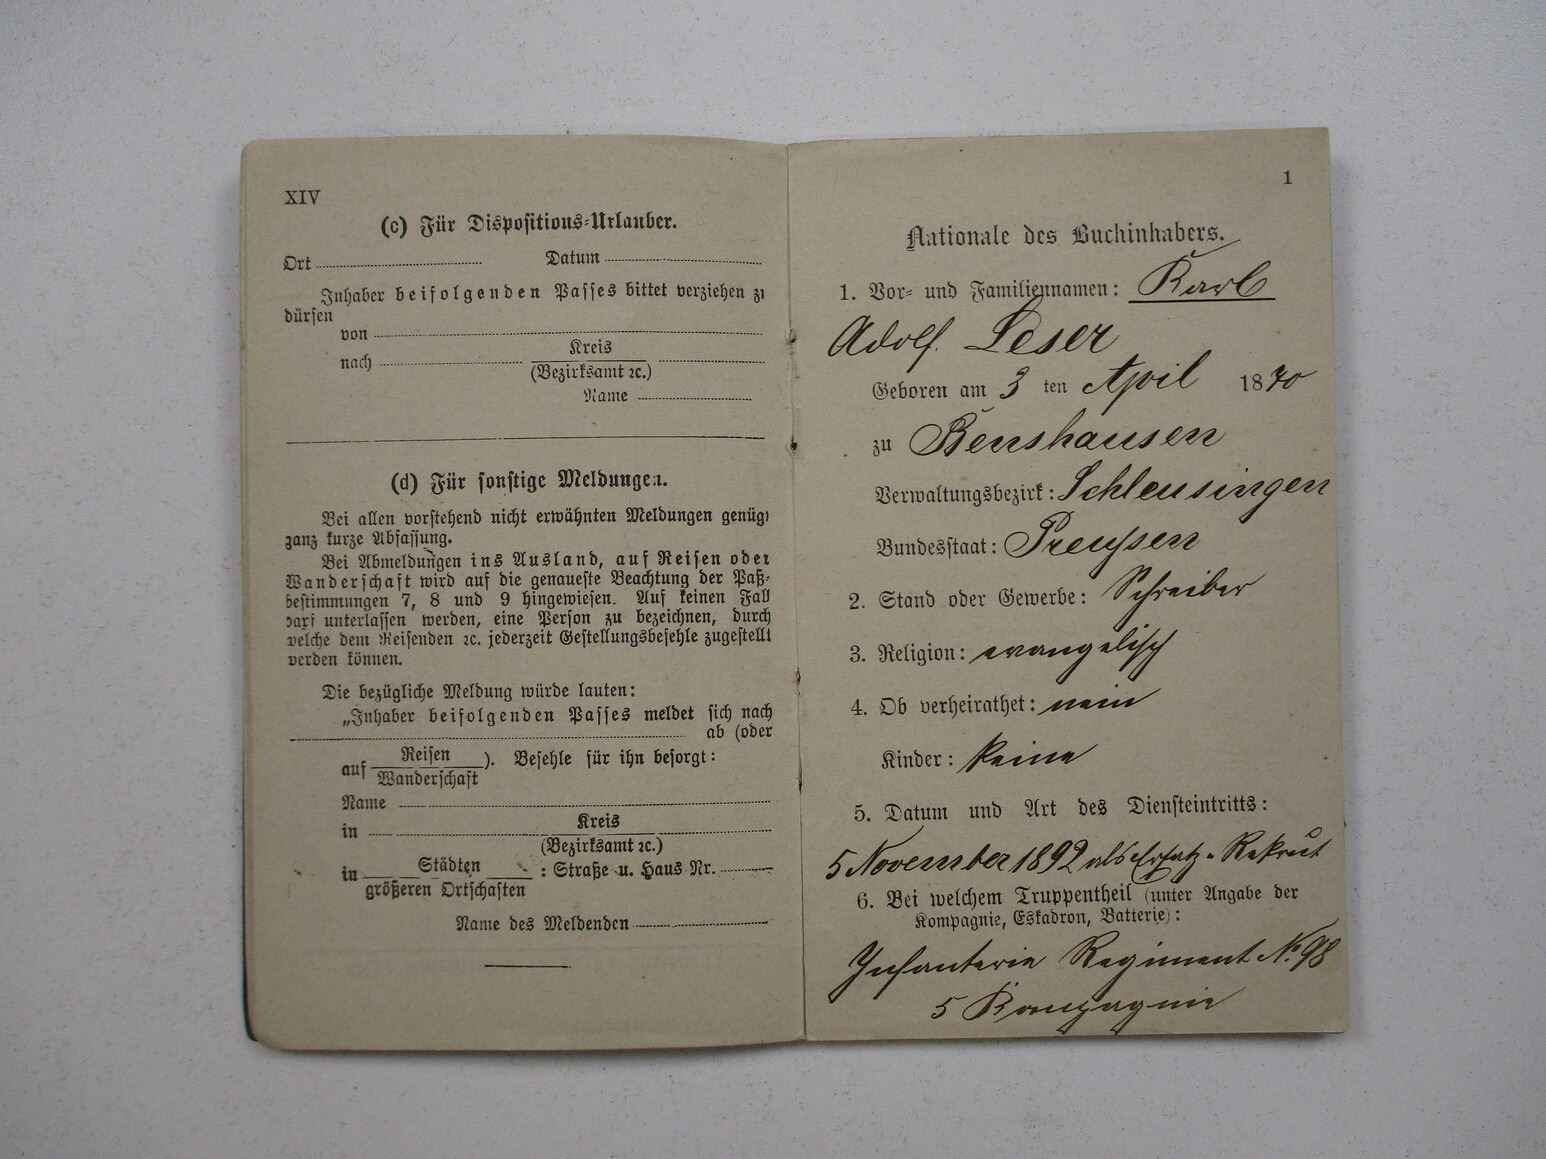 XIV
(c) Für Dispositions-Urlauber.
Ort Datum
Inhaber beifolgenden Passes bittet verziehen zu
dürfen
von
nach Kreis
(Bezirksamt ꝛc.)
Name
(d) Für sonstige Meldungen.
Bei allen vorstehend nicht erwähnten Meldungen genügt
ganz kurze Abfassung.
Bei Abmeldungen ins Ausland, auf Reisen oder
Wanderschaft wird auf die genaueste Beachtung der Paß-
bestimmungen 7, 8 und 9 hingewiesen. Auf keinen Fall
darf unterlassen werden, eine Person zu bezeichnen, durch
welche dem Reisenden ꝛc. jederzeit Gestellungsbefehle zugestellt
werden können.
Die bezügliche Meldung würde lauten:
„Inhaber beifolgenden Passes meldet sich nach
ab (oder
auf Reisen ). Befehle für ihn besorgt:
Wanderschaft
Name
in Kreis
(Bezirksamt ꝛc.)
in Städten : Straße u. Haus Nr.
größeren Ortschaften
Name des Meldenden
1
Nationale des Buchinhabers.
1. Vor- und Familiennamen: Karl
Adolf Leser
Geboren am 3 ten April 1870
zu Benshausen
Verwaltungsbezirk: Schleusingen
Bundesstaat: Preußen
2. Stand oder Gewerbe: Schreiber
3. Religion: evangelisch
4. Ob verheirathet: nein
Kinder: keine
5. Datum und Art des Diensteintritts:
5 November 1892 als Ersatz-Rekrut
6. Bei welchem Truppentheil (unter Angabe der
Kompagnie, Eskadron, Batterie):
Infanterie Regiment No. 98
5 Kompagnie